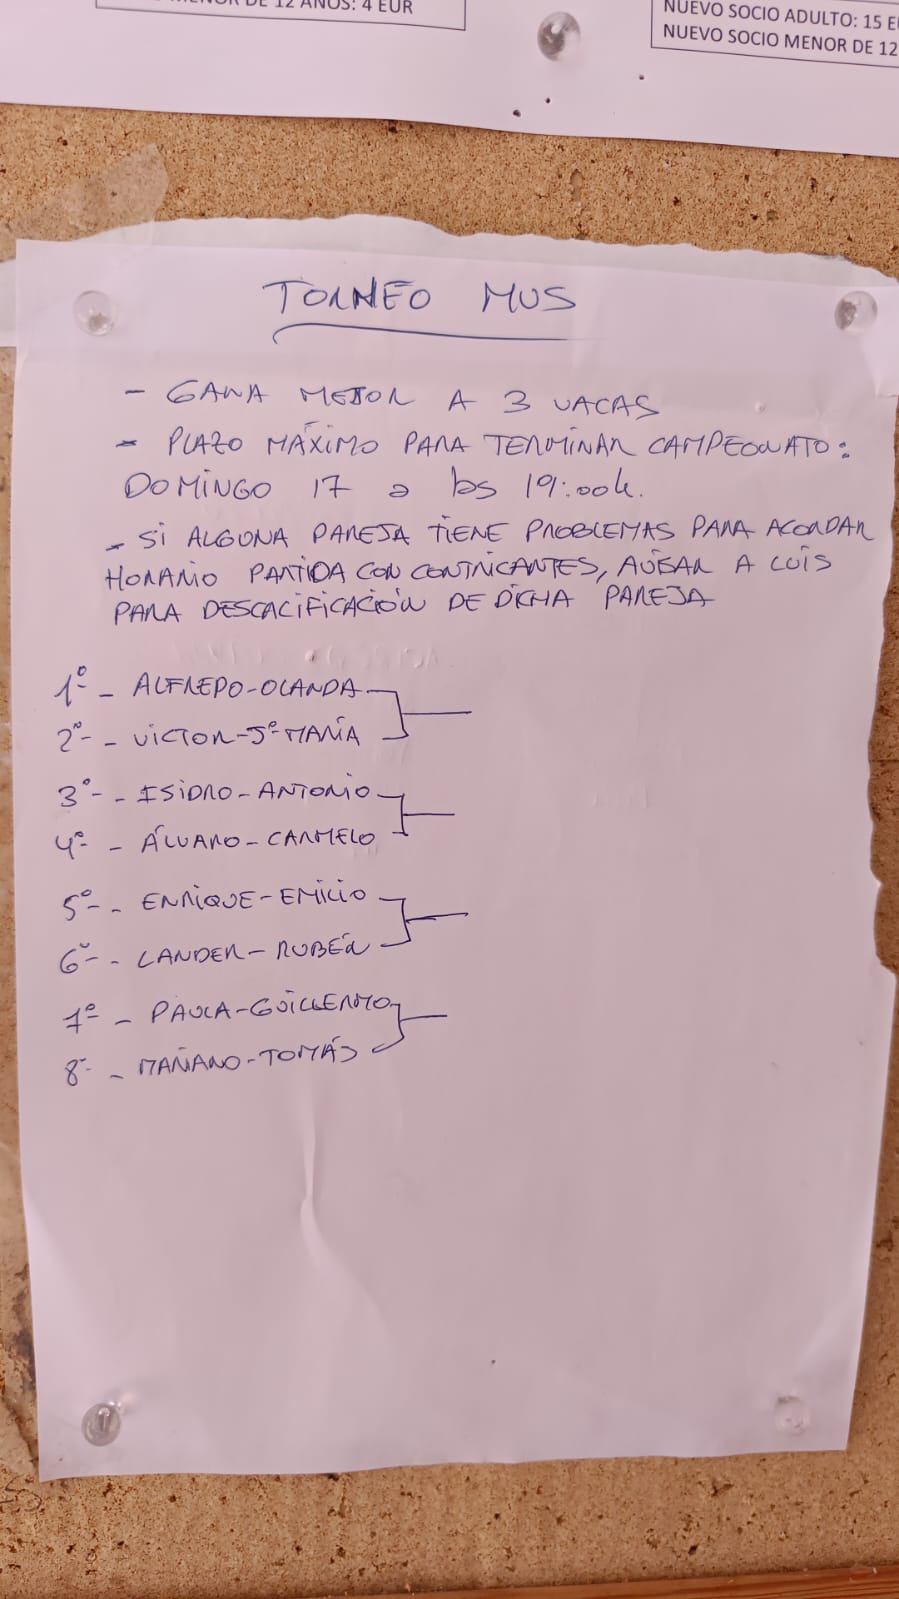 MENOR DE 12 AÑOS: 4 EUR
NUEVO SOCIO ADULTO: 15 E
NUEVO SOCIO MENOR DE 12
TORNEO MUS
- GANA MEJOR A 3 VACAS
- PLAZO MÁXIMO PARA TERMINAR CAMPEONATO:
DOMINGO 17 a las 19:00h.
- SI ALGUNA PAREJA TIENE PROBLEMAS PARA ACORDAR
HORARIO PARTIDA CON CONTRICANTES, AVISAR A LUIS
PARA DESCALIFICACIÓN DE DICHA PAREJA
1º - ALFREDO-OLANDA
2º - VICTOR-Jº MARÍA
3º - ISIDRO-ANTONIO
4º - ÁLVARO-CARMELO
5º - ENRIQUE-EMILIO
6º - LANDER-RUBÉN
7º - PAULA-GUILLERMO
8º - MARIANO-TOMÁS